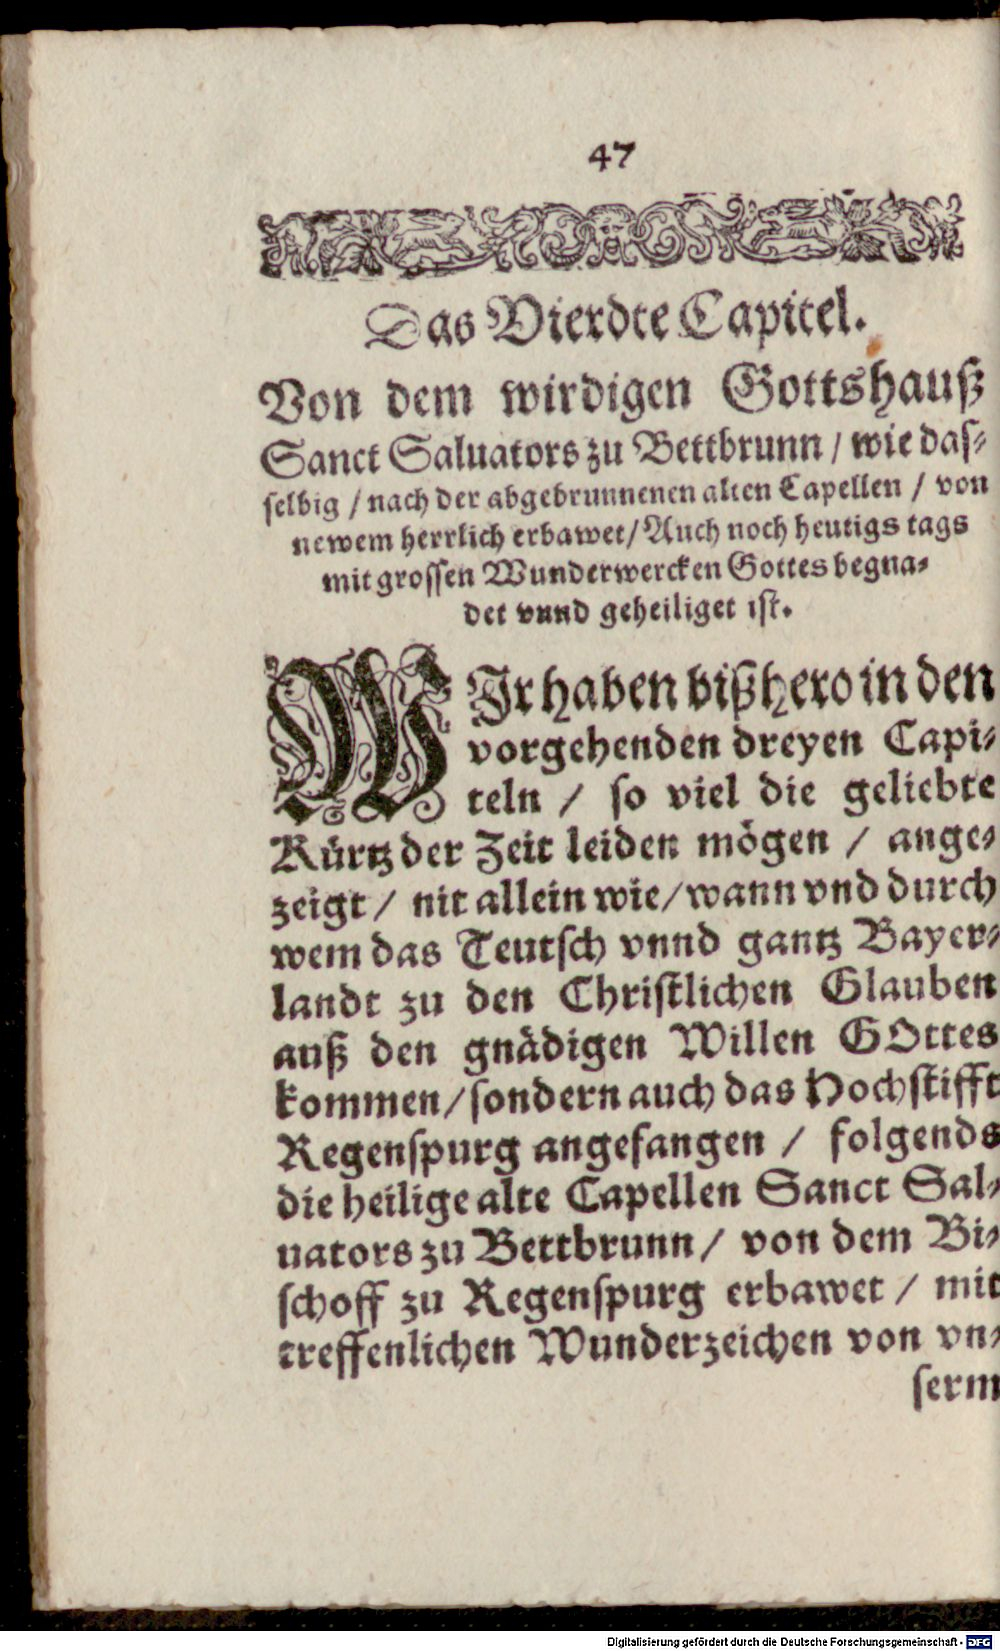 47
Das Vierdte Capitel.
Von dem wirdigen Gottshauß
Sanct Saluators zu Bettbrunn / wie das-
selbig / nach der abgebrunnenen alten Capellen / von
newem herrlich erbawet / Auch noch heutigs tags
mit grossen Wunderwercken Gottes begna-
det vnnd geheiliget ist.
WIr haben bißhero in den
vorgehenden dreyen Capi-
teln / so viel die geliebte
Kürtz der Zeit leiden mögen / ange-
zeigt / nit allein wie / wann vnd durch
wem das Teutsch vnnd gantz Bayer-
landt zu den Christlichen Glauben
auß den gnädigen Willen GOttes
kommen / sondern auch das Hochstifft
Regenspurg angefangen / folgends
die heilige alte Capellen Sanct Sal-
uators zu Bettbrunn / von dem Bi-
schoff zu Regenspurg erbawet / mit
treffenlichen Wunderzeichen von vn-
serm
Digitalisierung gefördert durch die Deutsche Forschungsgemeinschaft - DFG